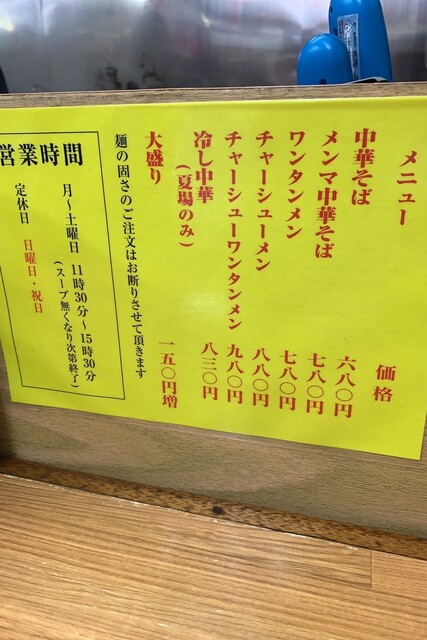 メニュー 価格
中華そば 六八〇円
メンマ中華そば 七八〇円
ワンタンメン 七八〇円
チャーシューメン 八八〇円
チャーシューワンタンメン 九八〇円
冷し中華 八三〇円
(夏場のみ)
大盛り 一五〇円増
麺の固さのご注文はお断りさせて頂きます
営業時間
月〜土曜日 11時30分〜15時30分
(スープ無くなり次第終了)
定休日 日曜日・祝日